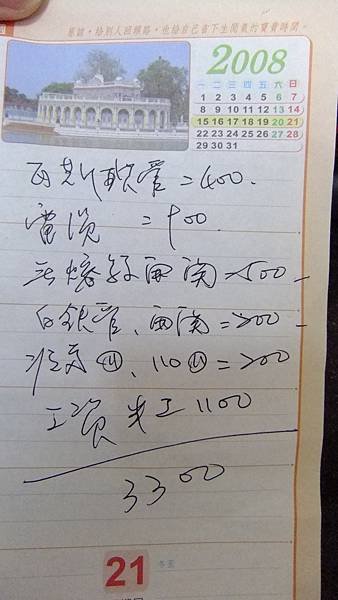 原諒，給別人回頭路，也給自己省下生閒氣的寶貴時間。
2008
一 二 三 四 五 六 日
1 2 3 4 5 6 7
8 9 10 11 12 13 14
15 16 17 18 19 20 21
22 23 24 25 26 27 28
29 30 31
軟管=400.
電 =900.
無熔絲開關=500
白鐵管、開關=200
110 =200
工資 半工 1100
3300
21 冬至